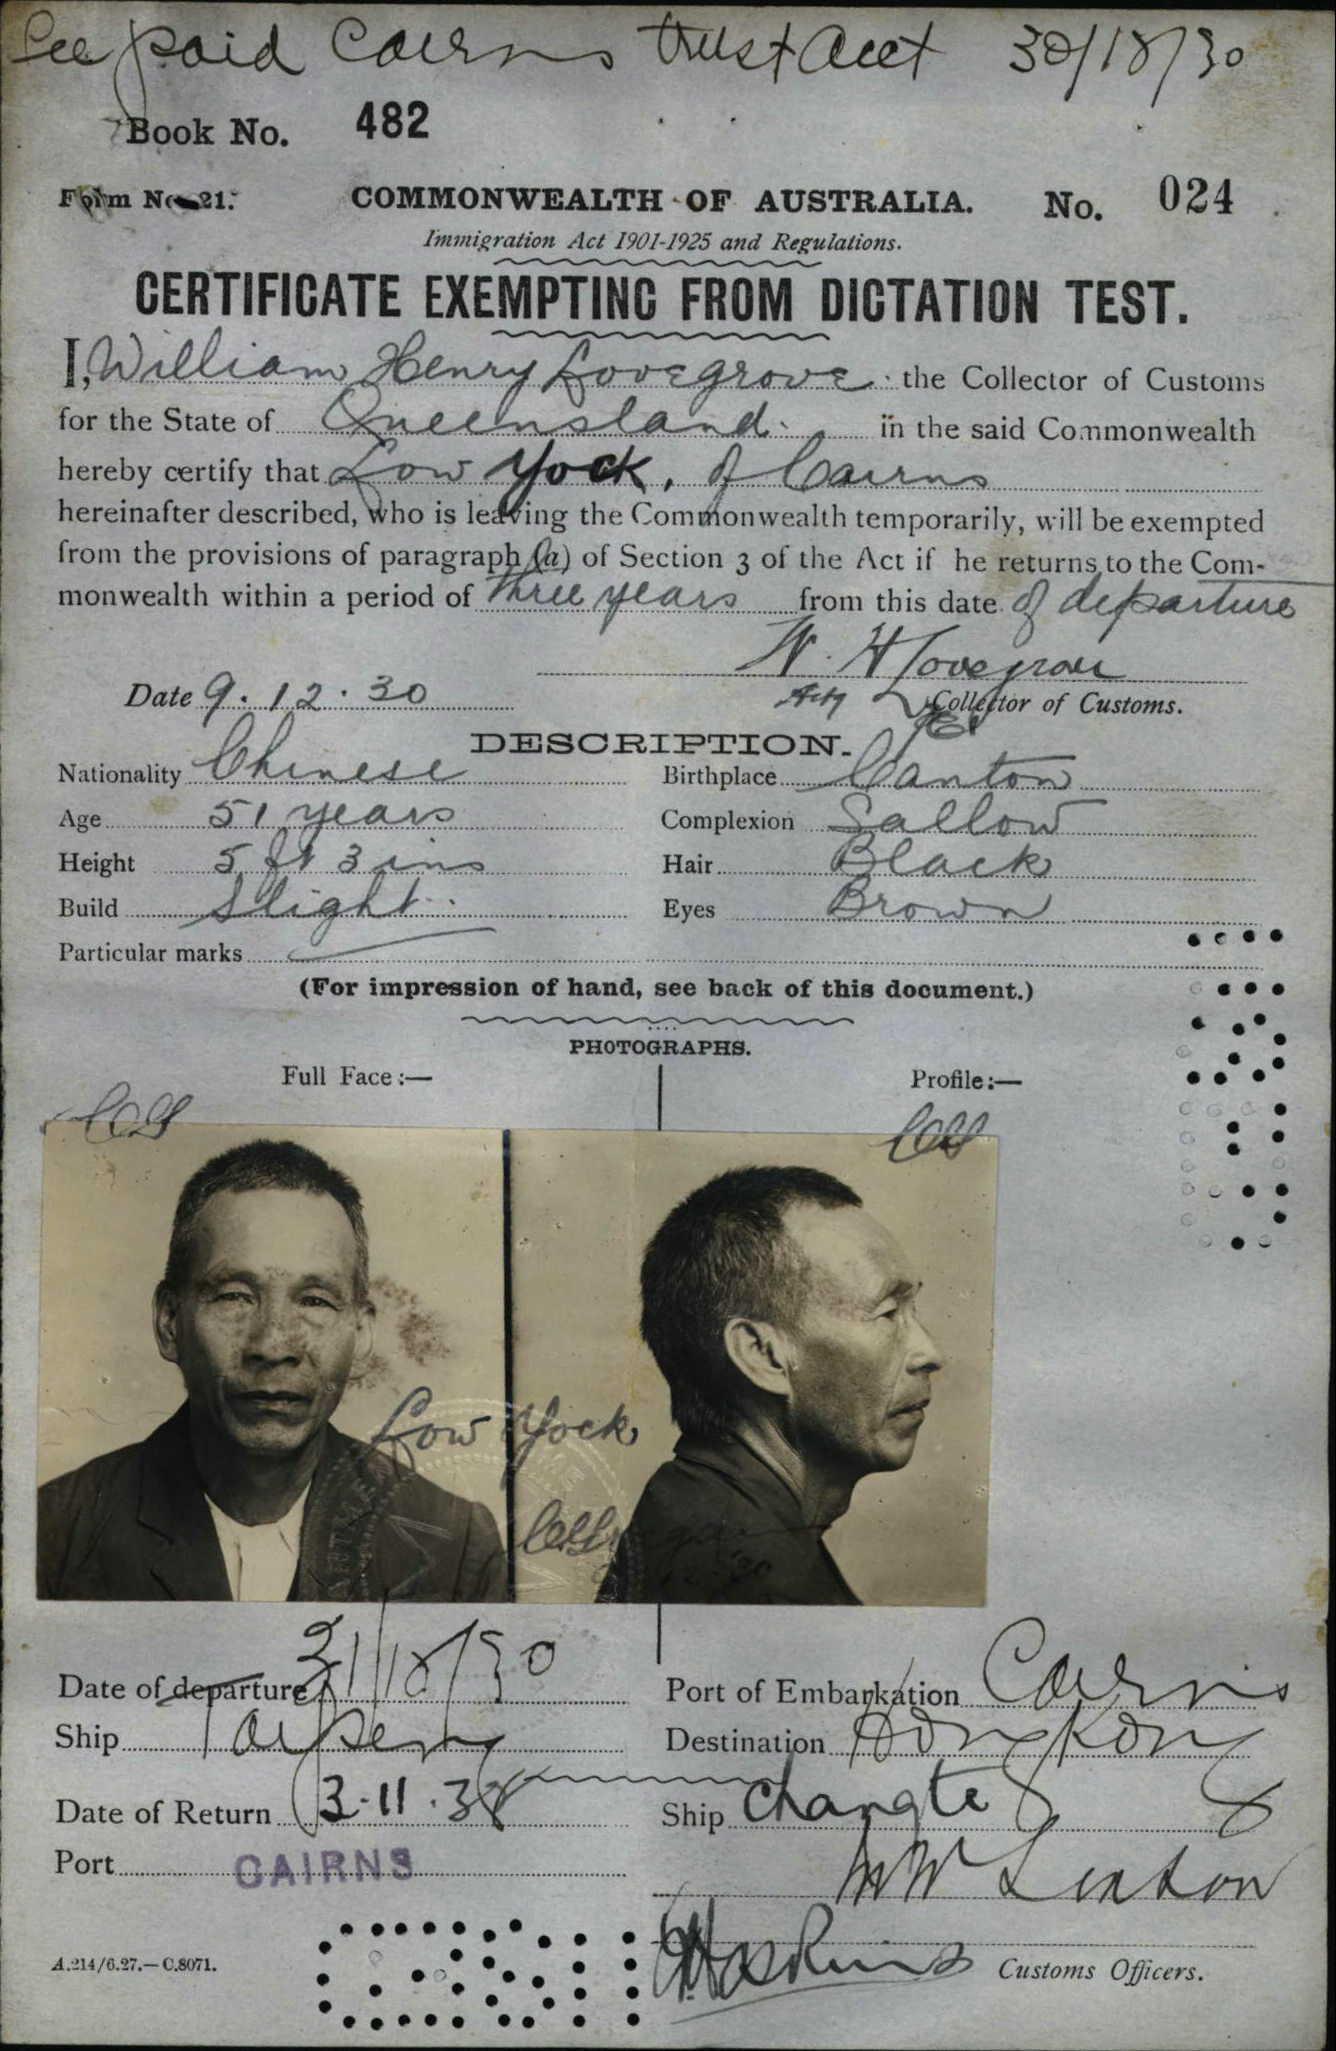 Fee paid Cairns trust acct 30/12/30
Book No. 482
Form No. 21. COMMONWEALTH OF AUSTRALIA. No. 024
Immigration Act 1901-1925 and Regulations.
CERTIFICATE EXEMPTING FROM DICTATION TEST.
I, William Henry Lovegrove the Collector of Customs
for the State of Queensland. in the said Commonwealth
hereby certify that Low Yock, of Cairns
hereinafter described, who is leaving the Commonwealth temporarily, will be exempted
from the provisions of paragraph (a) of Section 3 of the Act if he returns to the Com-
monwealth within a period of three years from this date of departure
W. H Lovegrove
Date 9. 12. 30 Actg Collector of Customs.
DESCRIPTION.
Nationality Chinese Birthplace Canton
Age 51 years Complexion Sallow
Height 5 ft 3 ins Hair Black
Build Slight. Eyes Brown
Particular marks
(For impression of hand, see back of this document.)
PHOTOGRAPHS.
Full Face:— Profile:—
Low Yock
Date of departure 31/12/30 Port of Embarkation Cairns
Ship Taiping Destination Hong Kong
Date of Return 3.11.38 Ship Changte
Port CAIRNS
A.214/6.27.—C.8071. Customs Officers.